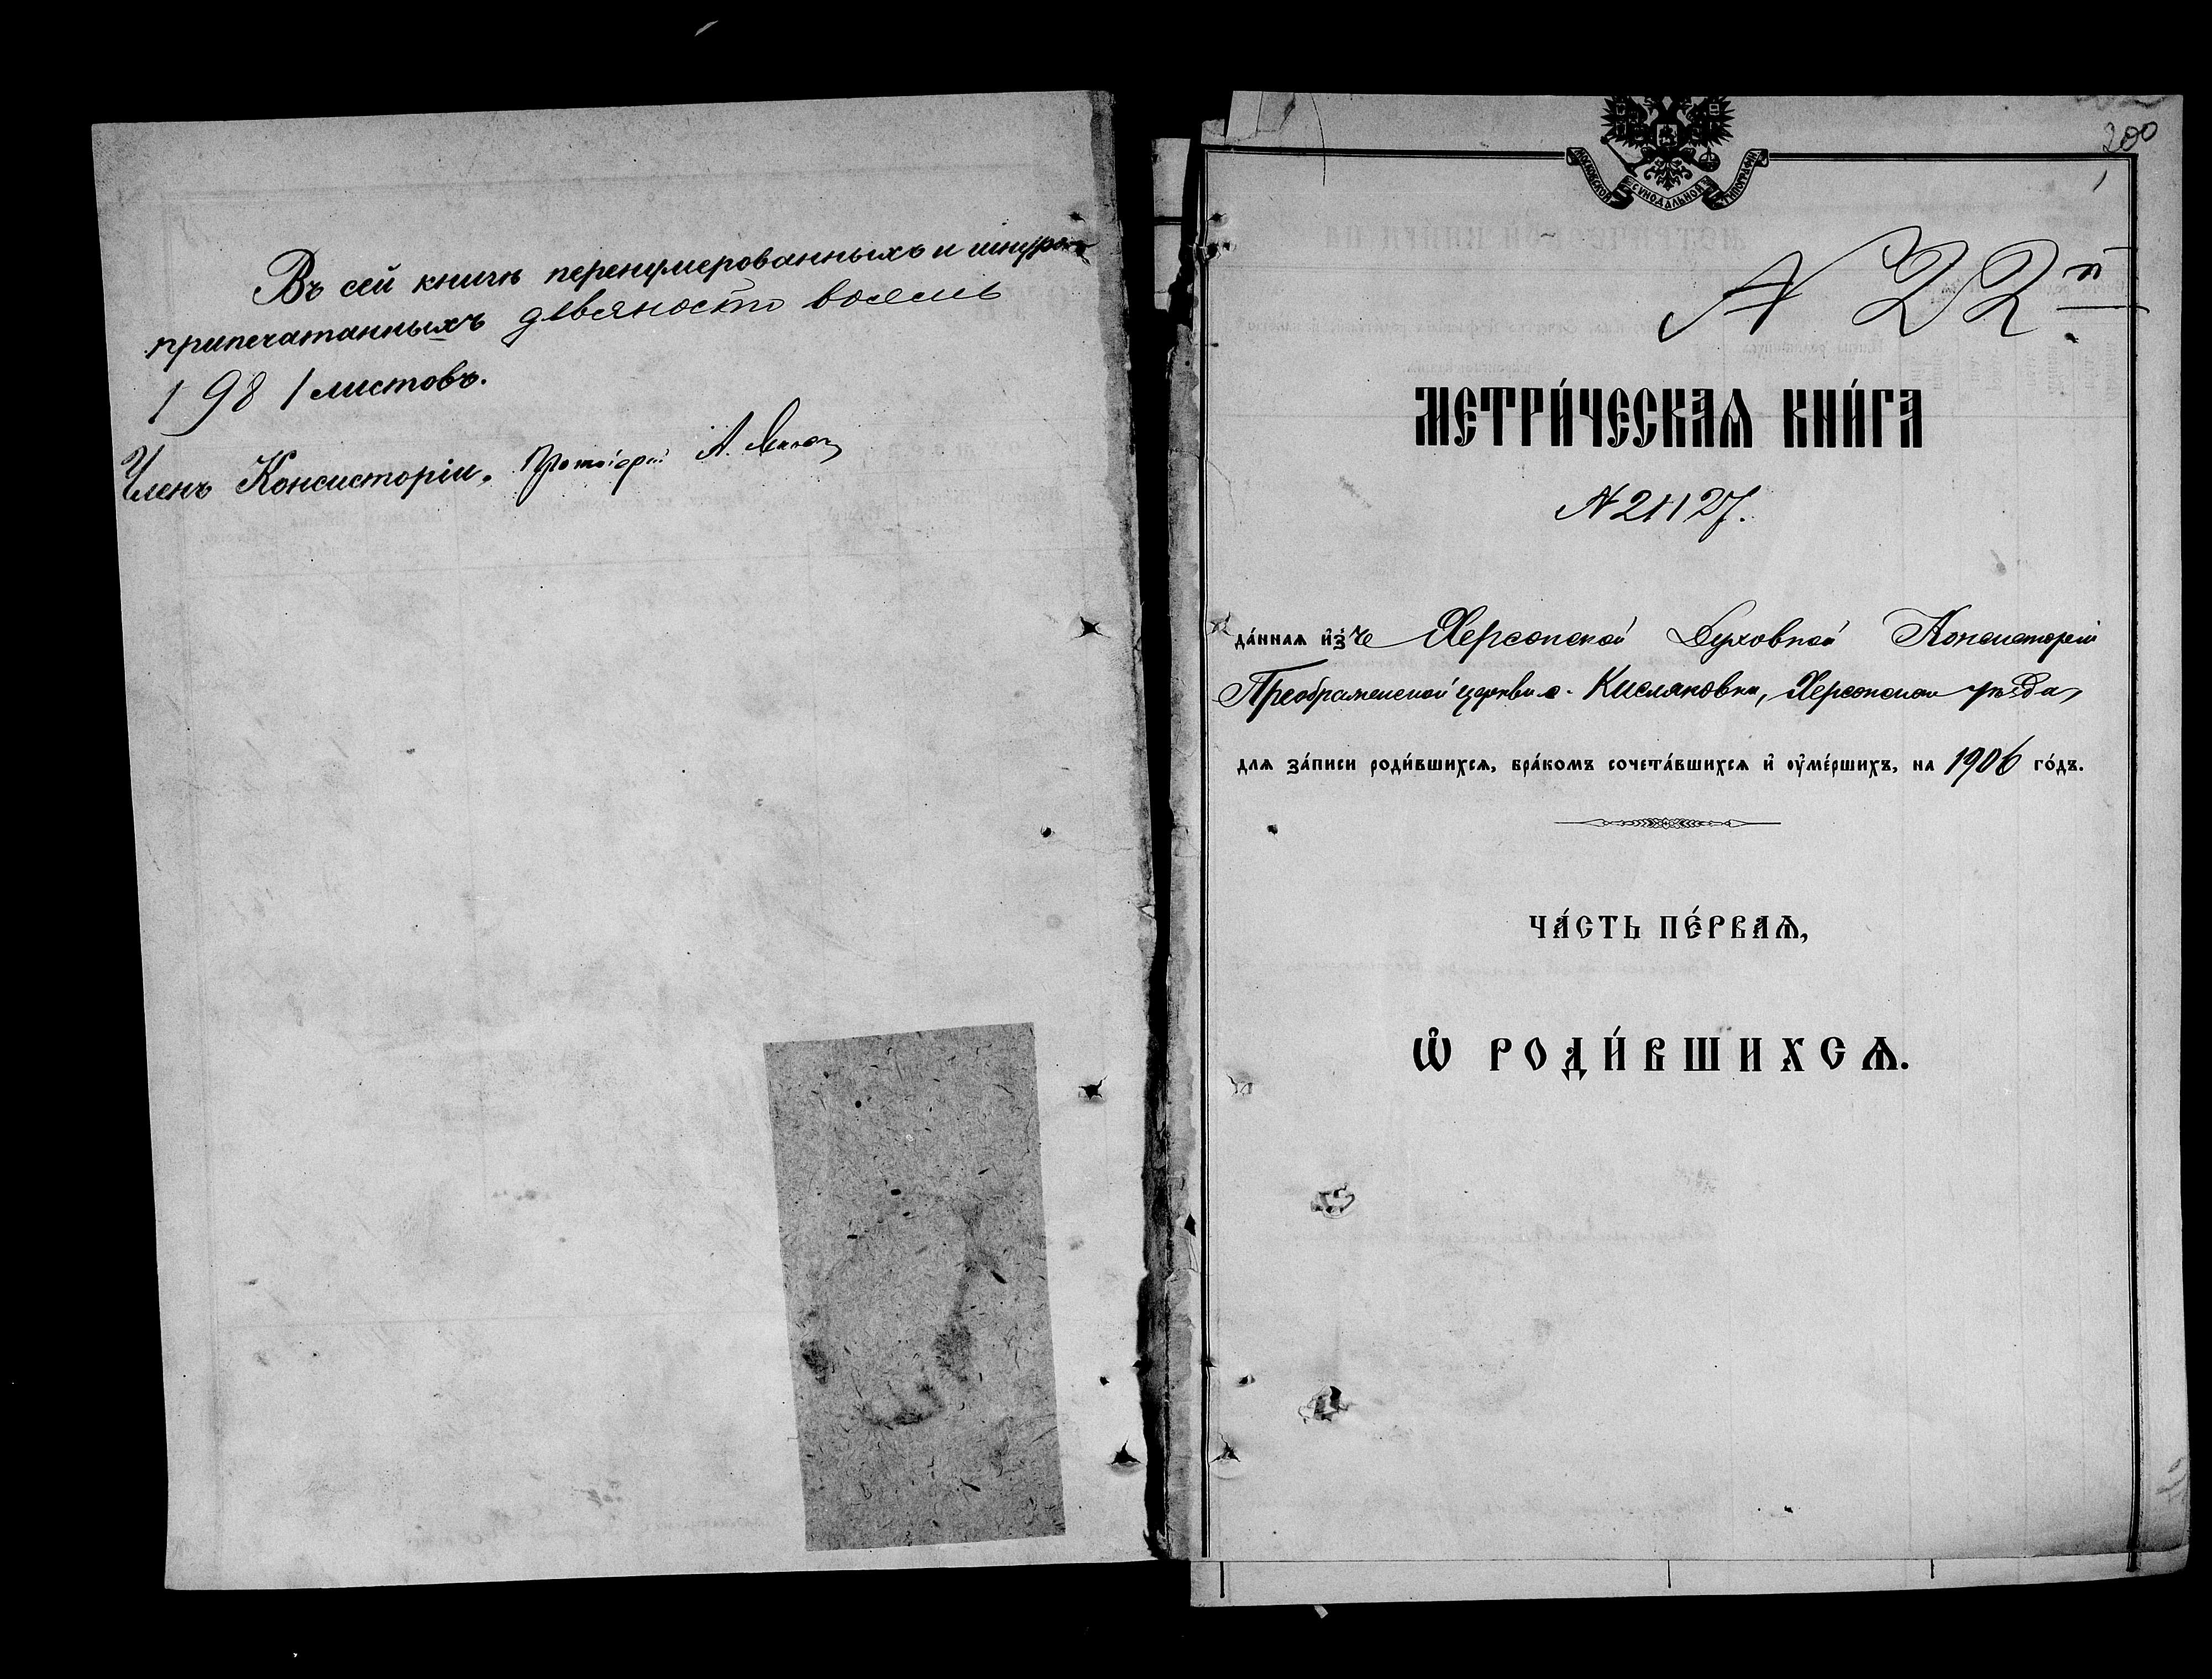 Въ сей книгѣ перенумерованныхъ и шнуро-
припечатанныхъ девяносто восемь
/ 98 / листовъ.
Членъ Консисторіи, Протоіерей А.
200
МОСКОВСКОЙ СѴНОДАЛЬНОЙ ТИПОГРАФІИ
№ 22й
МЕТРИ́ЧЕСКАѦ КНИ́ГА
№ 21127.
да́ннаѧ и҆зъ Херсонской Духовной Консисторіи
Преображенской церкви с. Кисляковки, Херсонскаго уѣзда,
длѧ за́писи роди́вшихсѧ, бра́комъ сочета́вшихсѧ и҆ оу҆ме́ршихъ, на 1906 го́дъ.
ЧА́СТЬ ПЕ́РВАѦ,
Ѡ҆ РОДИ́ВШИХСѦ.